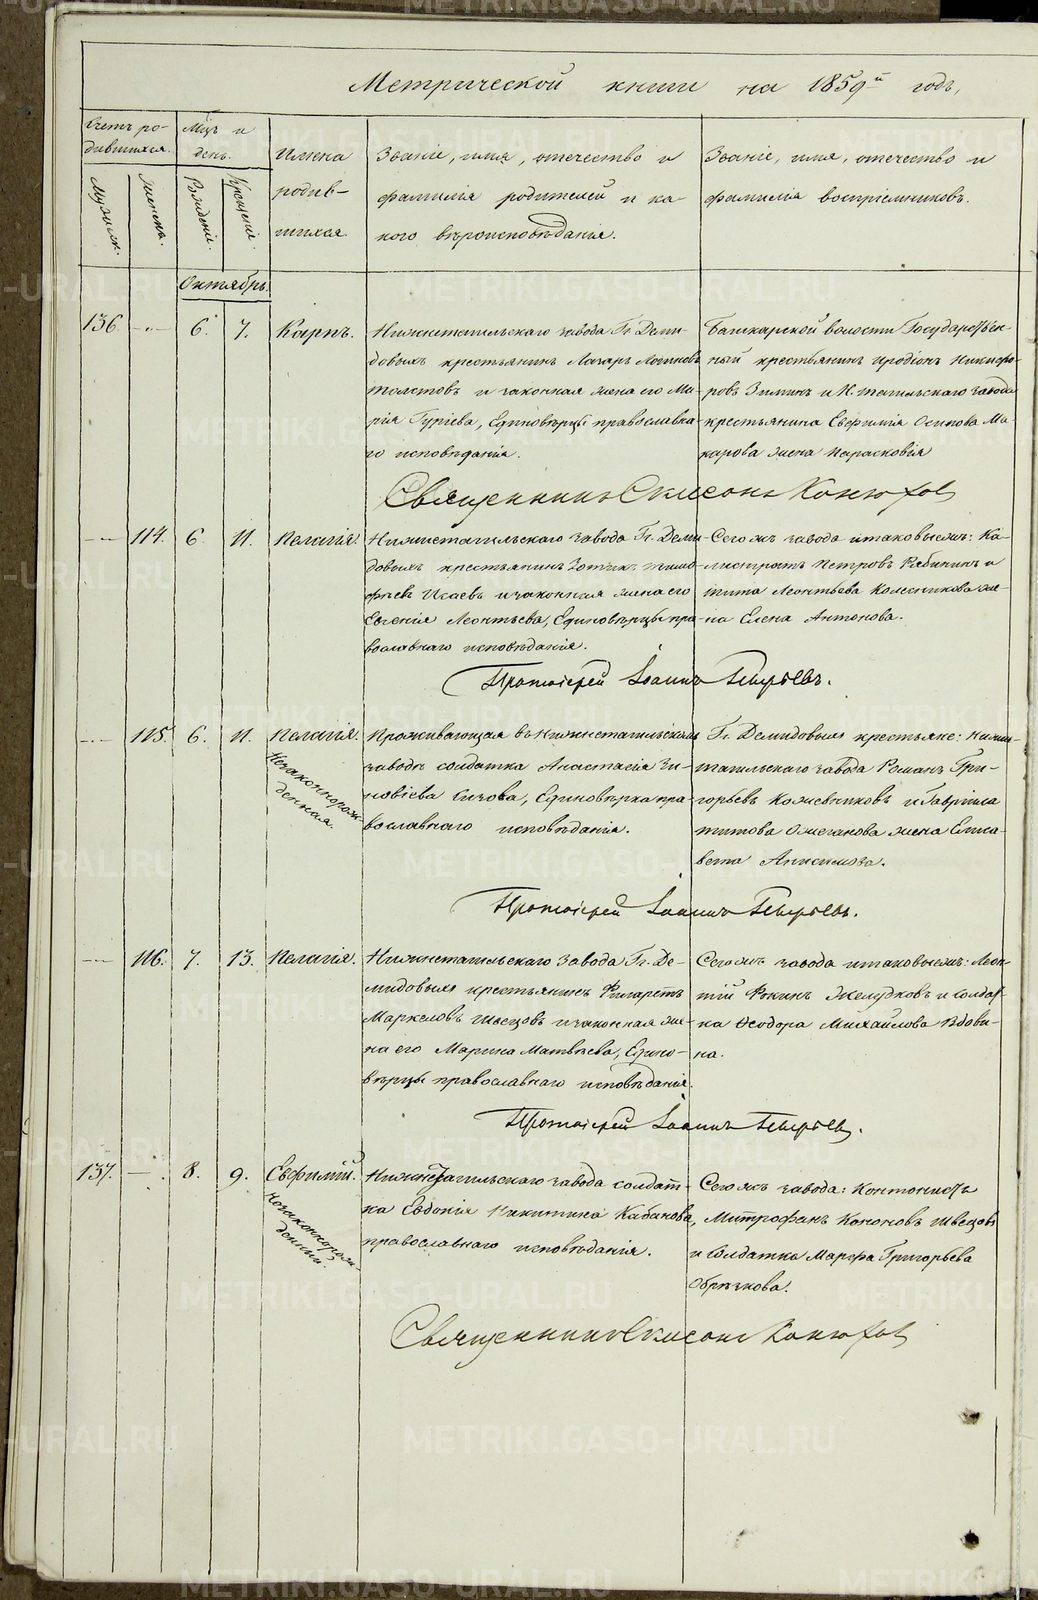 Метрической книги на 1859й годъ,
Счетъ ро-
дившихся.
Мужеск.
Женска.
Мѣц. и
день.
Рожденія.
Крещенія.
Имена
родив-
шихся
Званіе, имя, отечество и
фамилія родителей и ка-
кого вѣроисповѣданія.
Званіе, имя, отечество и
фамилія воспріемниковъ.
Октябрь
136 6. 7. Карпъ.
Нижнетагильскаго завода Гг. Деми-
довыхъ крестьянинъ Лазарь Логиновъ
Толстовъ и законная жена его Ма-
рія Гуріева, Единовѣрцы православна-
го исповѣданія.
Башкарской волости Государствен-
ный крестьянинъ Иродіонъ Никифо-
ровъ Зиминъ и Н. Тагильскаго завода
крестьянина Евфимія Осипова Ма-
карова жена Парасковія
Священникъ Симеонъ Конюховъ
114. 6. 11. Пелагія.
Нижнетагильскаго завода Гг. Деми-
довыхъ крестьянинъ Зотикъ Тимо-
фѣевъ Исаевъ и законная жена его
Евгенія Леонтьева, Единовѣрцы пра-
вославнаго исповѣданія.
Сегожъ завода итаковыежъ: Ка-
листратъ Петровъ Рябининъ и
Тита Леонтьева Колесникова же-
на Елена Антонова.
Протоіерей Іоаннъ
115. 6. 11. Пелагія.
Незаконнорож-
денная.
Проживающая въ Нижнетагильскомъ
заводѣ солдатка Анастасія Зи-
новіева Сизова, Единовѣрка пра-
вославнаго исповѣданія.
Гг. Демидовыхъ крестьяне: Нижне-
тагильскаго завода Романъ Гри-
горьевъ Кожевниковъ и Гавріила
Титова Ожеганова жена Елиса-
вета Анисимова.
Протоіерей Іоаннъ
116. 7. 13. Пелагія.
Нижнетагильскаго завода Гг. Де-
мидовыхъ крестьянинъ Филаретъ
Маркеловъ Швецовъ и законная же-
на его Марина Матвѣева, Едино-
вѣрцы православнаго исповѣданія.
Сегожъ завода итаковыежъ: Леон-
тій Фокинъ Желудковъ и солдат-
ка Ѳеодора Михайлова Вдови-
на.
Протоіерей Іоаннъ
137. 8. 9. Евфимій.
Незаконнорож-
денный
Нижнетагильскаго завода солдат-
ка Евдокія Никитина Кабакова,
православнаго исповѣданія.
Сегожъ завода: Кантонистъ
Митрофанъ Кононовъ Швецовъ
и солдатка Марѳа Григорьева
Обрѣзкова.
Священникъ Симеонъ Конюховъ
METRIKI.GASO-URAL.RU